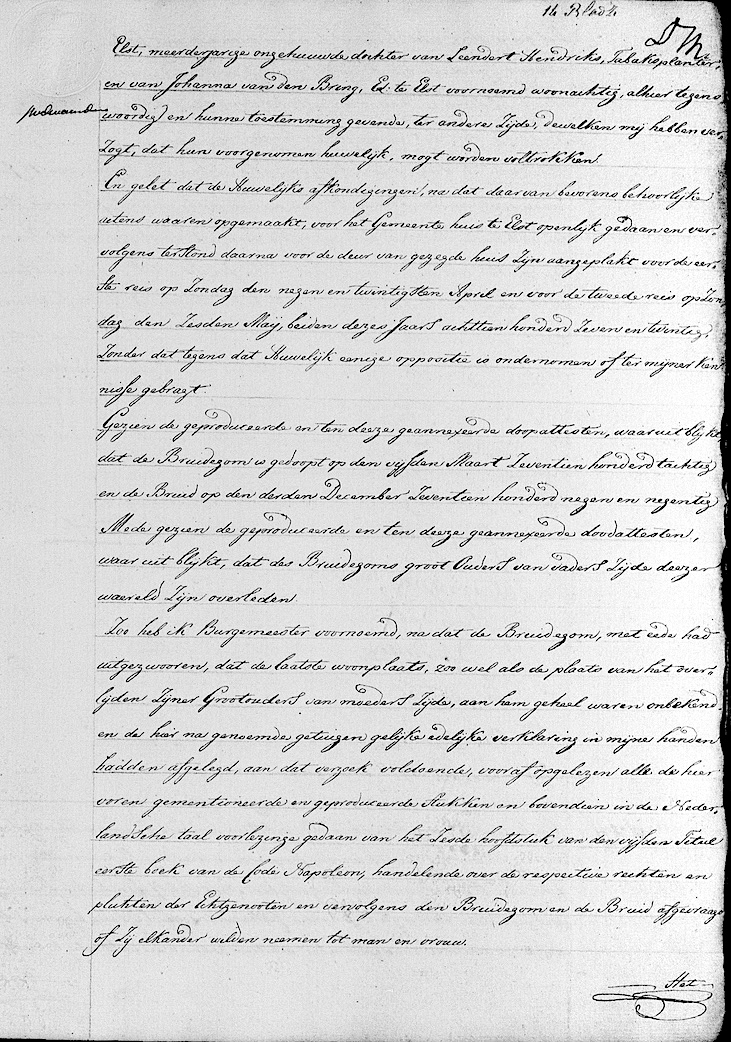 14 Bladz
Elst, meerderjarige ongehuuwde dochter van Leendert Hendriks, Tabaksplanter
en van Johanna van den Bring, Ed: te Elst voornoemd woonachtig, alhier tegens
woordig) en hunne toestemming gevende, ter andere Zijde, dewelken mij hebben ver-
zogt, dat hun voorgenomen huwelijk, mogt worden voltrokken.
En gelet dat de Huwelijks afkondigingen, na dat daar van bevorens behoorlijke
actens waaren opgemaakt, voor het Gemeente huis te Elst openlijk gedaan en ver-
volgens terstond daarna voor de deur van gezegde huis Zijn aangeplakt voor de eer-
ste reis op Zondag den negen en twintigsten April en voor de tweede reis op Zon
dag den Zesden Meij, beiden dezes Jaars achttien honderd Zeven en twintig,
Zonder dat tegens dat Huwelijk eenige oppositie is ondernomen of ter mijner ken
nisse gebragt.
Gezien de geproduceerde en ten deeze geannexeerde doopattesten, waar uit blijkt
dat de Bruidegom is gedoopt op den vijfden Maart Zeventien honderd tachtig
en de Bruid op den derden December Zeventien honderd negen en negentig
Mede gezien de geproduceerde en ten deeze geannexeerde doodattesten,
waar uit blijkt, dat des Bruidegoms groot Ouders van vaders Zijde deezer
waereld Zijn overleden.
Zoo heb ik Burgemeester voornoemd, na dat de Bruidegom, met eede had
uitgezwooren, dat de laatste woonplaats, zoo wel als de plaats van het over-
lijden Zijner Grootouders van moeders Zijde, aan hem geheel waren onbekend,
en de hier na genoemde getuigen gelijke edelijke verklaring in mijne handen
hadden afgelegd, aan dat verzoek voldoende, vooraf opgelezen alle de hier
voren gementioneerde en geproduceerde Stukken en bovendien in de Neder-
landsche taal voorlezinge gedaan van het Zesde hoofdstuk van den vijfden Titul
eerste boek van de Code Napoleon, handelende over de respective rechten en
plichten der Echtgenooten en vervolgens den Bruidegom en de Bruid afgevraagd
of Zij elkander wilden neemen tot man en vrouw.
Het